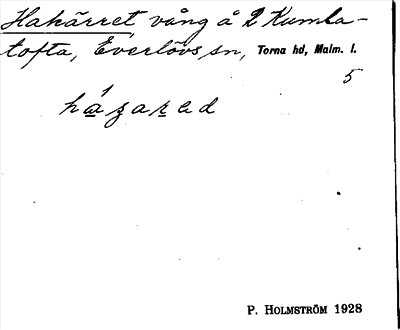 Hakärret, vång å 2 Kumla-
tofta, Everlövs sn, Torna hd, Malm. l.
5
házarad
P. HOLMSTRÖM 1928